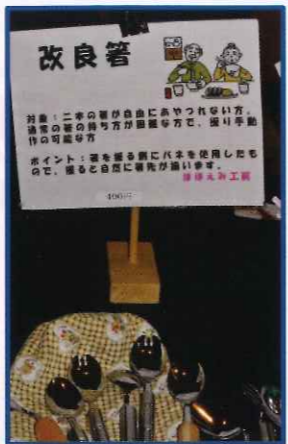 改良箸
対象：二本の箸が自由にあやつれない方、
通常の箸の持ち方が困難な方で、握り手動
作の可能な方
ポイント：箸を握る側にバネを使用したも
ので、握ると自然に箸先が揃います。
ほほえみ工房
400円